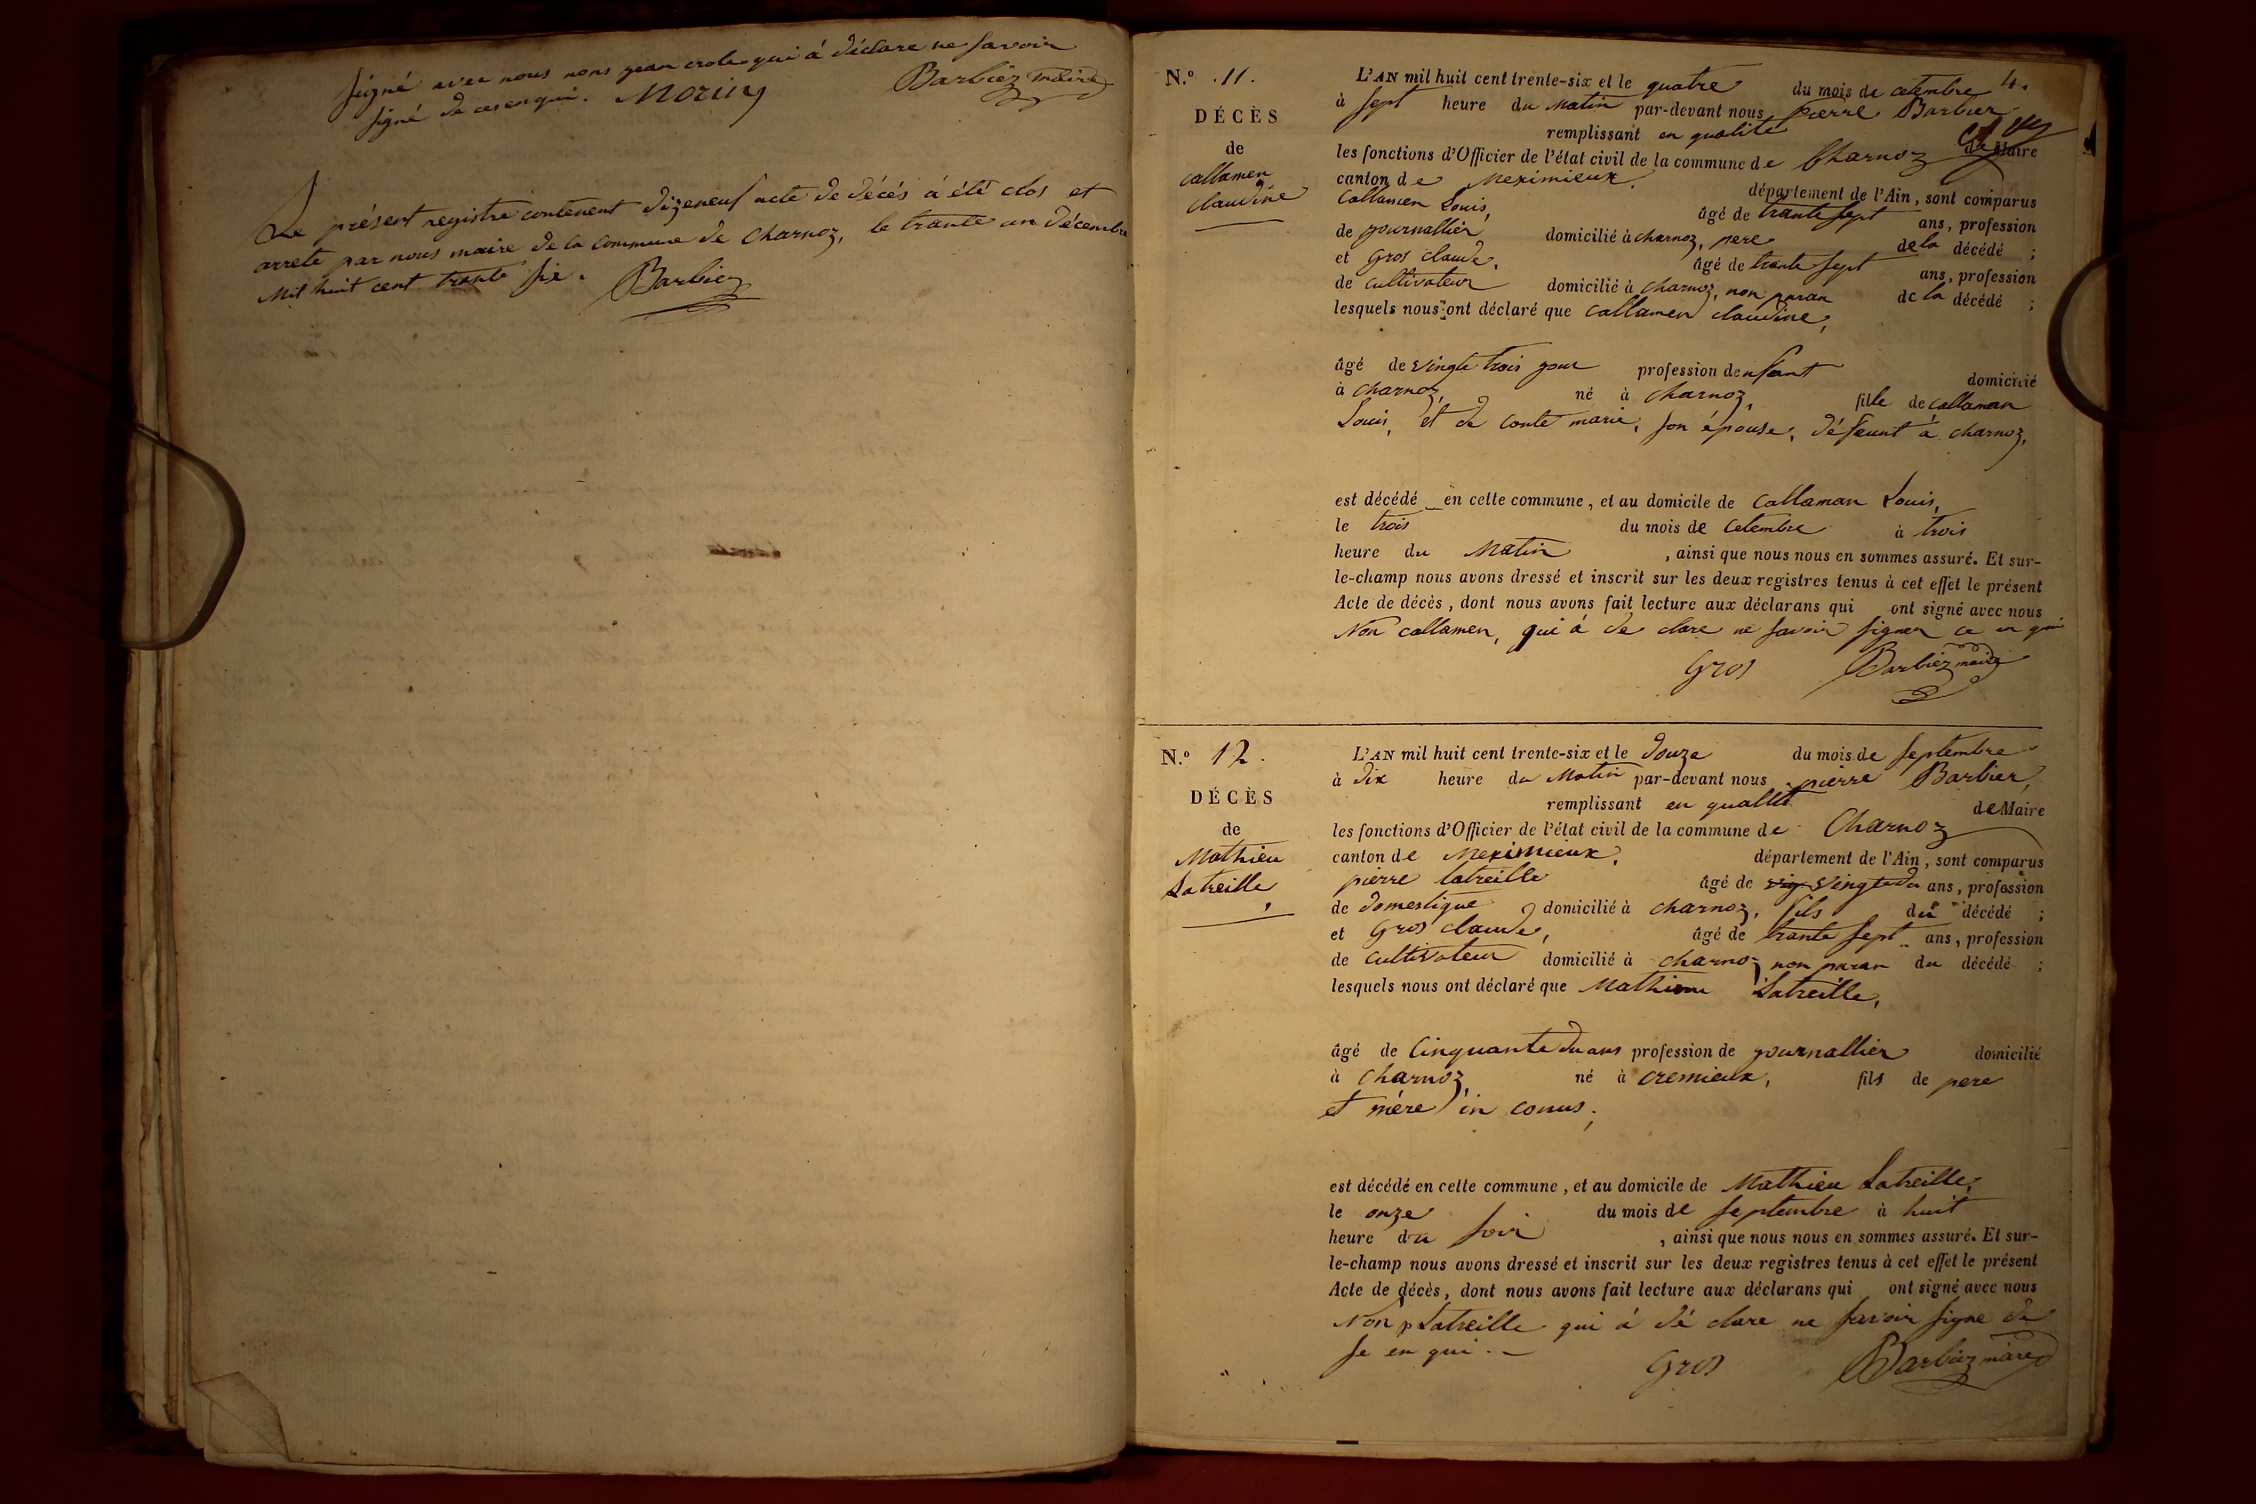 signé avec nous nons jean crole qui à déclare ne savoir
signé de ce en qui. Morin Barbiez maire
Le présent registre contenent dizeneuf acte de décés à été clos et
arrete par nous maire de la commune de Charnoz, le trante un décembre
Mil huit cent trante six. Barbiez
4.
N.º .11.
DÉCÈS
de
callamen
claudine
L'AN mil huit cent trente-six et le quatre du mois de cetembre
à sept heure du Matin par-devant nous pierre Barbier
remplissant en qualité de Maire
les fonctions d'Officier de l'état civil de la commune de Charnoz
canton de Meximieux. département de l'Ain, sont comparus
Callamen Louis, âgé de trante sept ans, profession
de journallier domicilié à charnoz, pere de la décédé ;
et Gros claude, âgé de trante sept ans, profession
de cultivateur domicilié à charnoz, non paran de la décédé ;
lesquels nous ont déclaré que callamen claudine,
âgé de vingte trois jour profession denfant domicilié
à charnoz, né à charnoz, fille de callaman
Louis, et de conte marie, son épouse, défeunt à charnoz,
est décédé en cette commune, et au domicile de callaman Louis,
le trois du mois de cetembre à trois
heure du Matin , ainsi que nous nous en sommes assuré. Et sur-
le-champ nous avons dressé et inscrit sur les deux registres tenus à cet effet le présent
Acte de décès, dont nous avons fait lecture aux déclarans qui ont signé avec nous
Non callamen, qui à de clare ne savoir signer ce en qui
Gros Barbiez maire
N.º 12.
DÉCÈS
de
Mathieu
Latreille,
L'AN mil huit cent trente-six et le douze du mois de septembre
à dix heure du Matin par-devant nous pierre Barbier,
remplissant en quallité de Maire
les fonctions d'Officier de l'état civil de la commune de Charnoz
canton de Meximieux. département de l'Ain, sont comparus
pierre latreille âgé de vingte du ans, profession
de domestique domicilié à charnoz, fils du décédé ;
et Gros claude, âgé de trante sept ans, profession
de cultivateur domicilié à charnoz non paran du décédé ;
lesquels nous ont déclaré que Mathieu Latreille,
âgé de Cinquante du ans profession de journallier domicilié
à charnoz, né à cremieux, fils de pere
et mére in conus,
est décédé en cette commune, et au domicile de Mathieu Latreille,
le onze du mois de septembre à huit
heure du soir , ainsi que nous nous en sommes assuré. Et sur-
le-champ nous avons dressé et inscrit sur les deux registres tenus à cet effet le présent
Acte de décès, dont nous avons fait lecture aux déclarans qui ont signé avec nous
Non p Latreille qui à dé clare ne savoir signe de
se en qui. Gros Barbiez maire